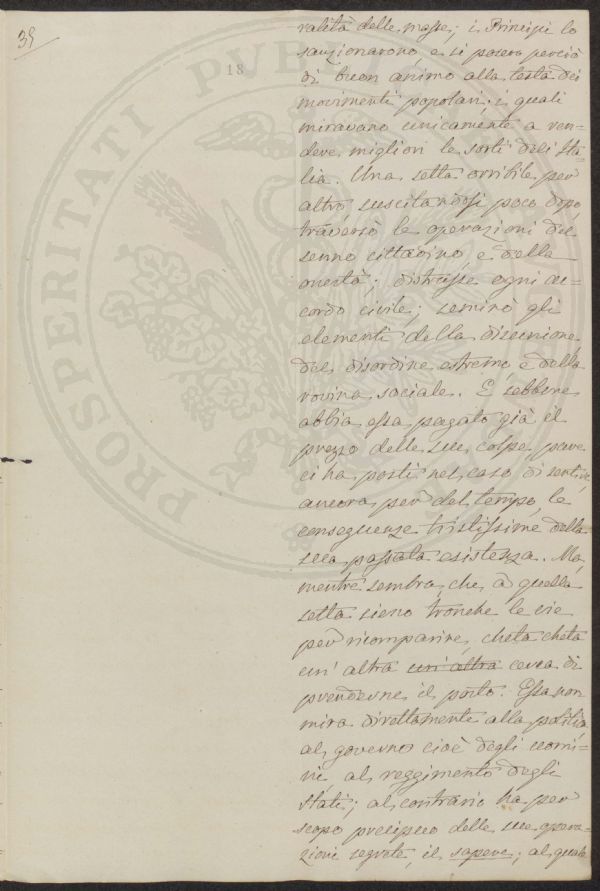 39
18
PROSPERITATI PUBLICAE
ralità delle masse; i Principi lo
sanzionarono e si posero perciò
di buon animo alla testa dei
movimenti popolari, i quali
miravano unicamente a ren=
dere migliori le sorti dell'Ita=
lia. Una setta orribile per
altro suscitandosi poco dopo
traversò le operazioni del
senno cittadino e della
onestà; distrusse ogni ac=
cordo civile; seminò gli
elementi della disunione
del disordine estremo e della
rovina sociale. E sebbene
abbia essa pagato già il
prezzo delle sue colpe, pure
ci ha posti nel caso di sentire
ancora per del tempo le
conseguenze tristissime della
sua passata esistenza. Ma,
mentre sembra che a quella
setta sieno tronche le vie
per ricomparire, cheta cheta
un' altra un' altra cerca di
prenderne il posto. Essa non
mira direttamente alla politica
al governo cioè degli uomi=
ni, al reggimento degli
Stati; al contrario ha per
scopo precipuo delle sue opera=
zioni segrete, il sapere; al quale